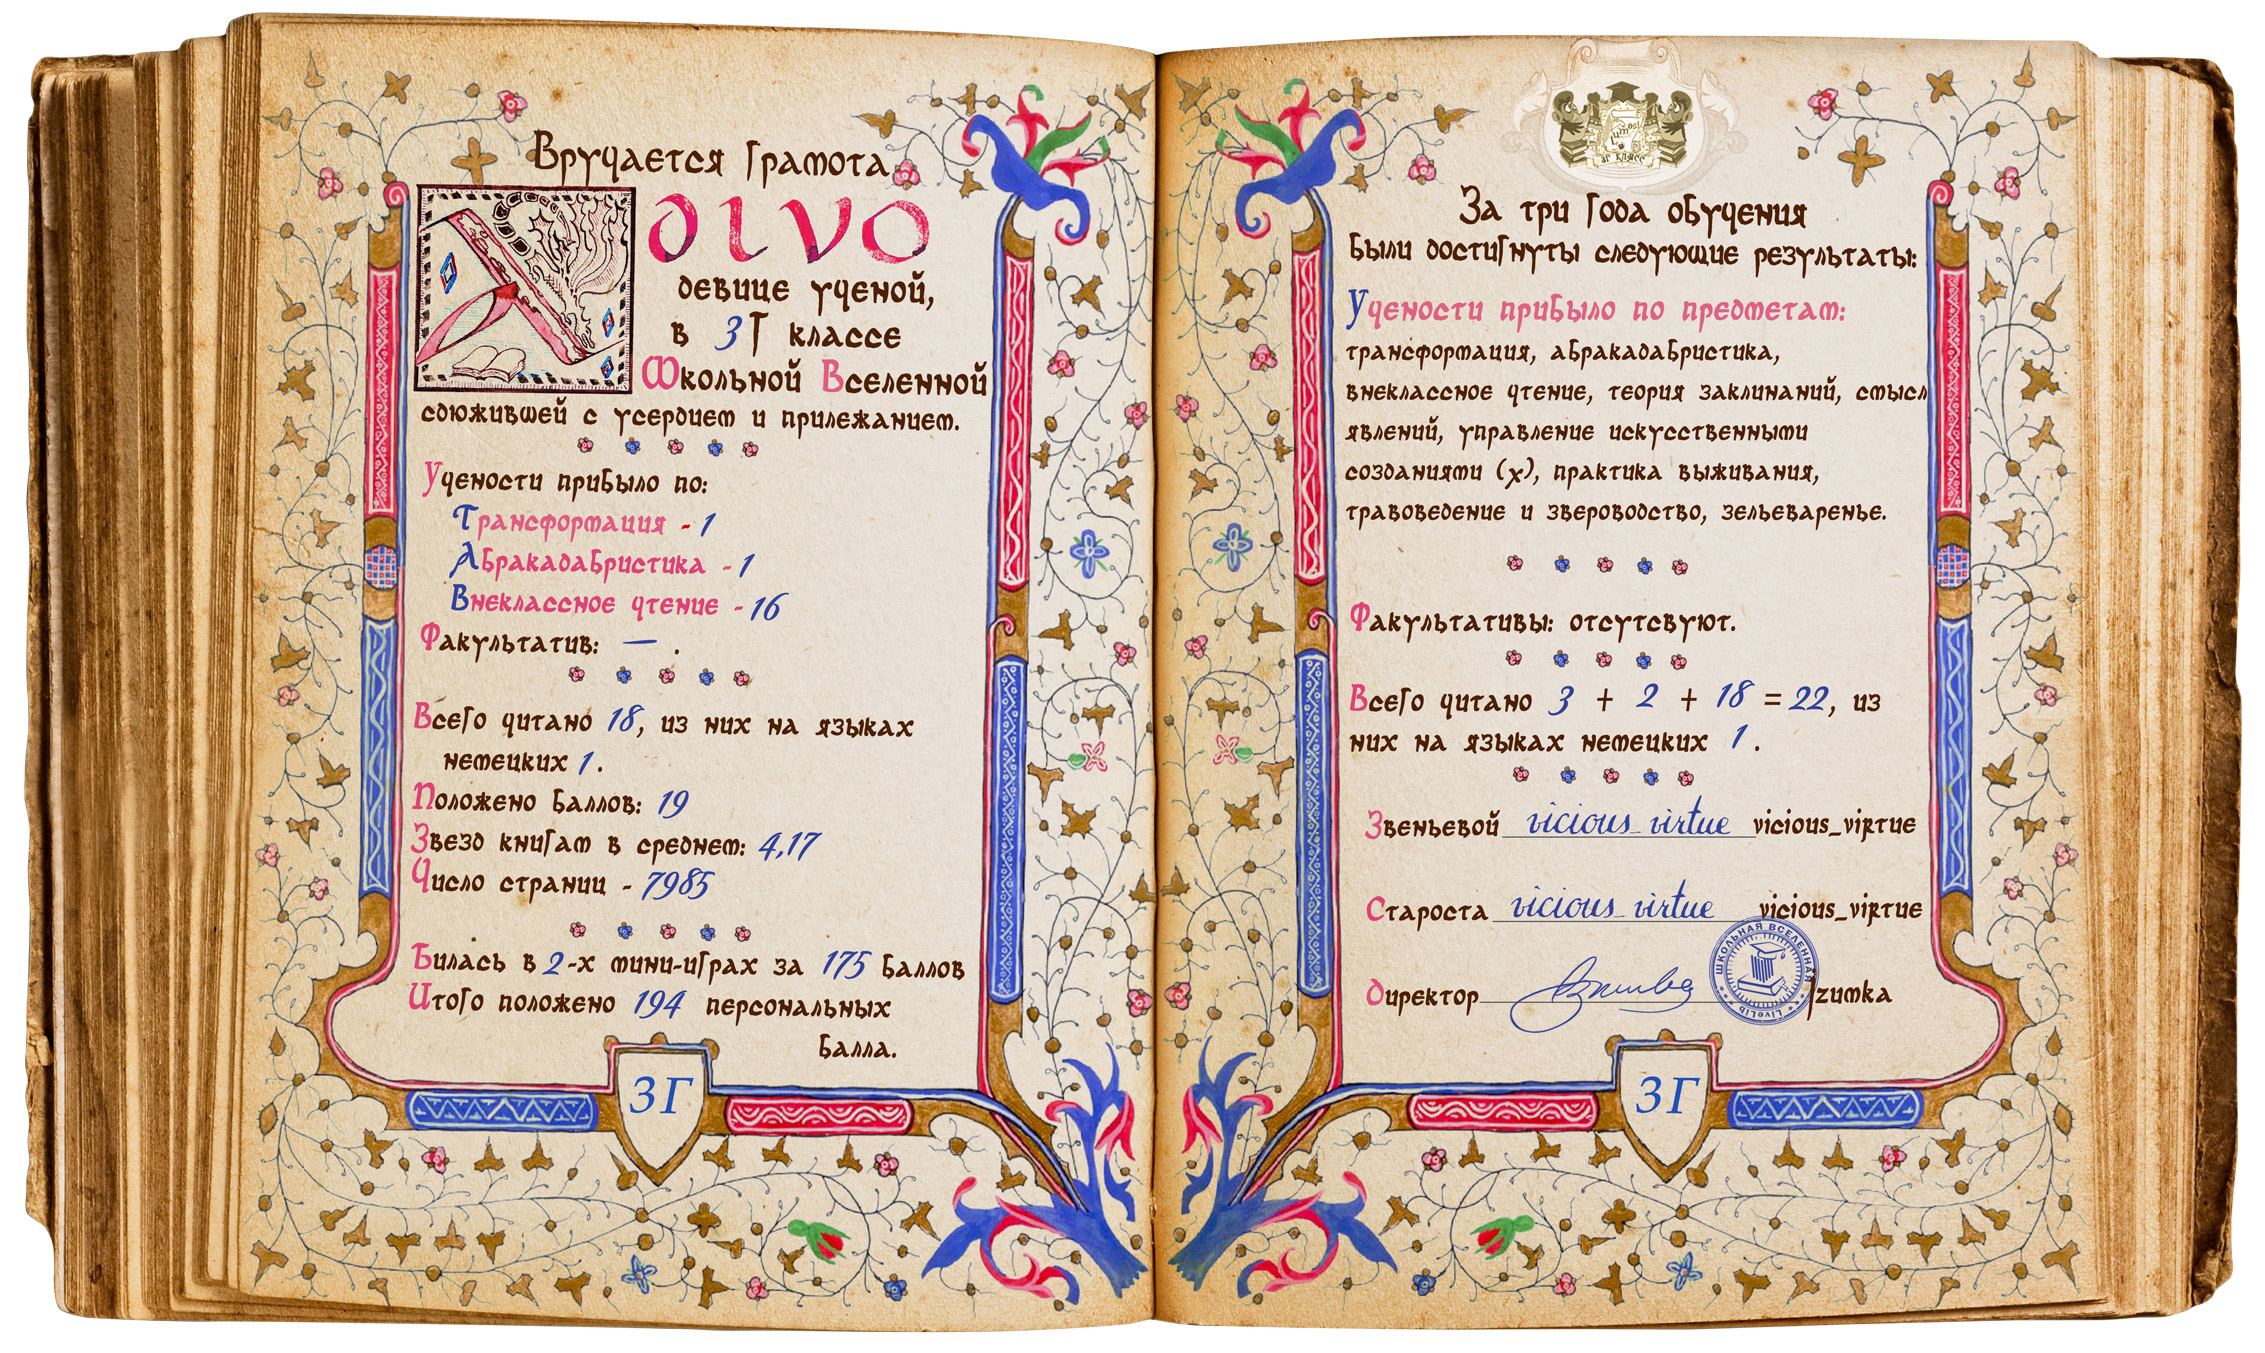 Вручается Грамота
Adivo
девице ученой,
в 3Г классе
Школьной Вселенной
сдюжившей с усердием и прилежанием.
Учености прибыло по:
Трансформация - 1
Абракадабристика - 1
Внеклассное чтение - 16
Факультатив: — .
Всего читано 18, из них на языках
немецких 1.
Положено баллов: 19
Звезд книгам в среднем: 4,17
Число страниц - 7985
Билась в 2-х мини-играх за 175 баллов
Итого положено 194 персональных
балла.
3Г
За три года обучения
были достигнуты следующие результаты:
Учености прибыло по предметам:
трансформация, абракадабристика,
внеклассное чтение, теория заклинаний, смысл
явлений, управление искусственными
созданиями (х), практика выживания,
травоведение и звероводство, зельеваренье.
Факультативы: отсутсвуют.
Всего читано 3 + 2 + 18 = 22, из
них на языках немецких 1.
Звеньевой vicious_virtue vicious_virtue
Староста vicious_virtue vicious_virtue
Директор Izumka
ШКОЛЬНАЯ ВСЕЛЕННАЯ
LiveLib
3Г